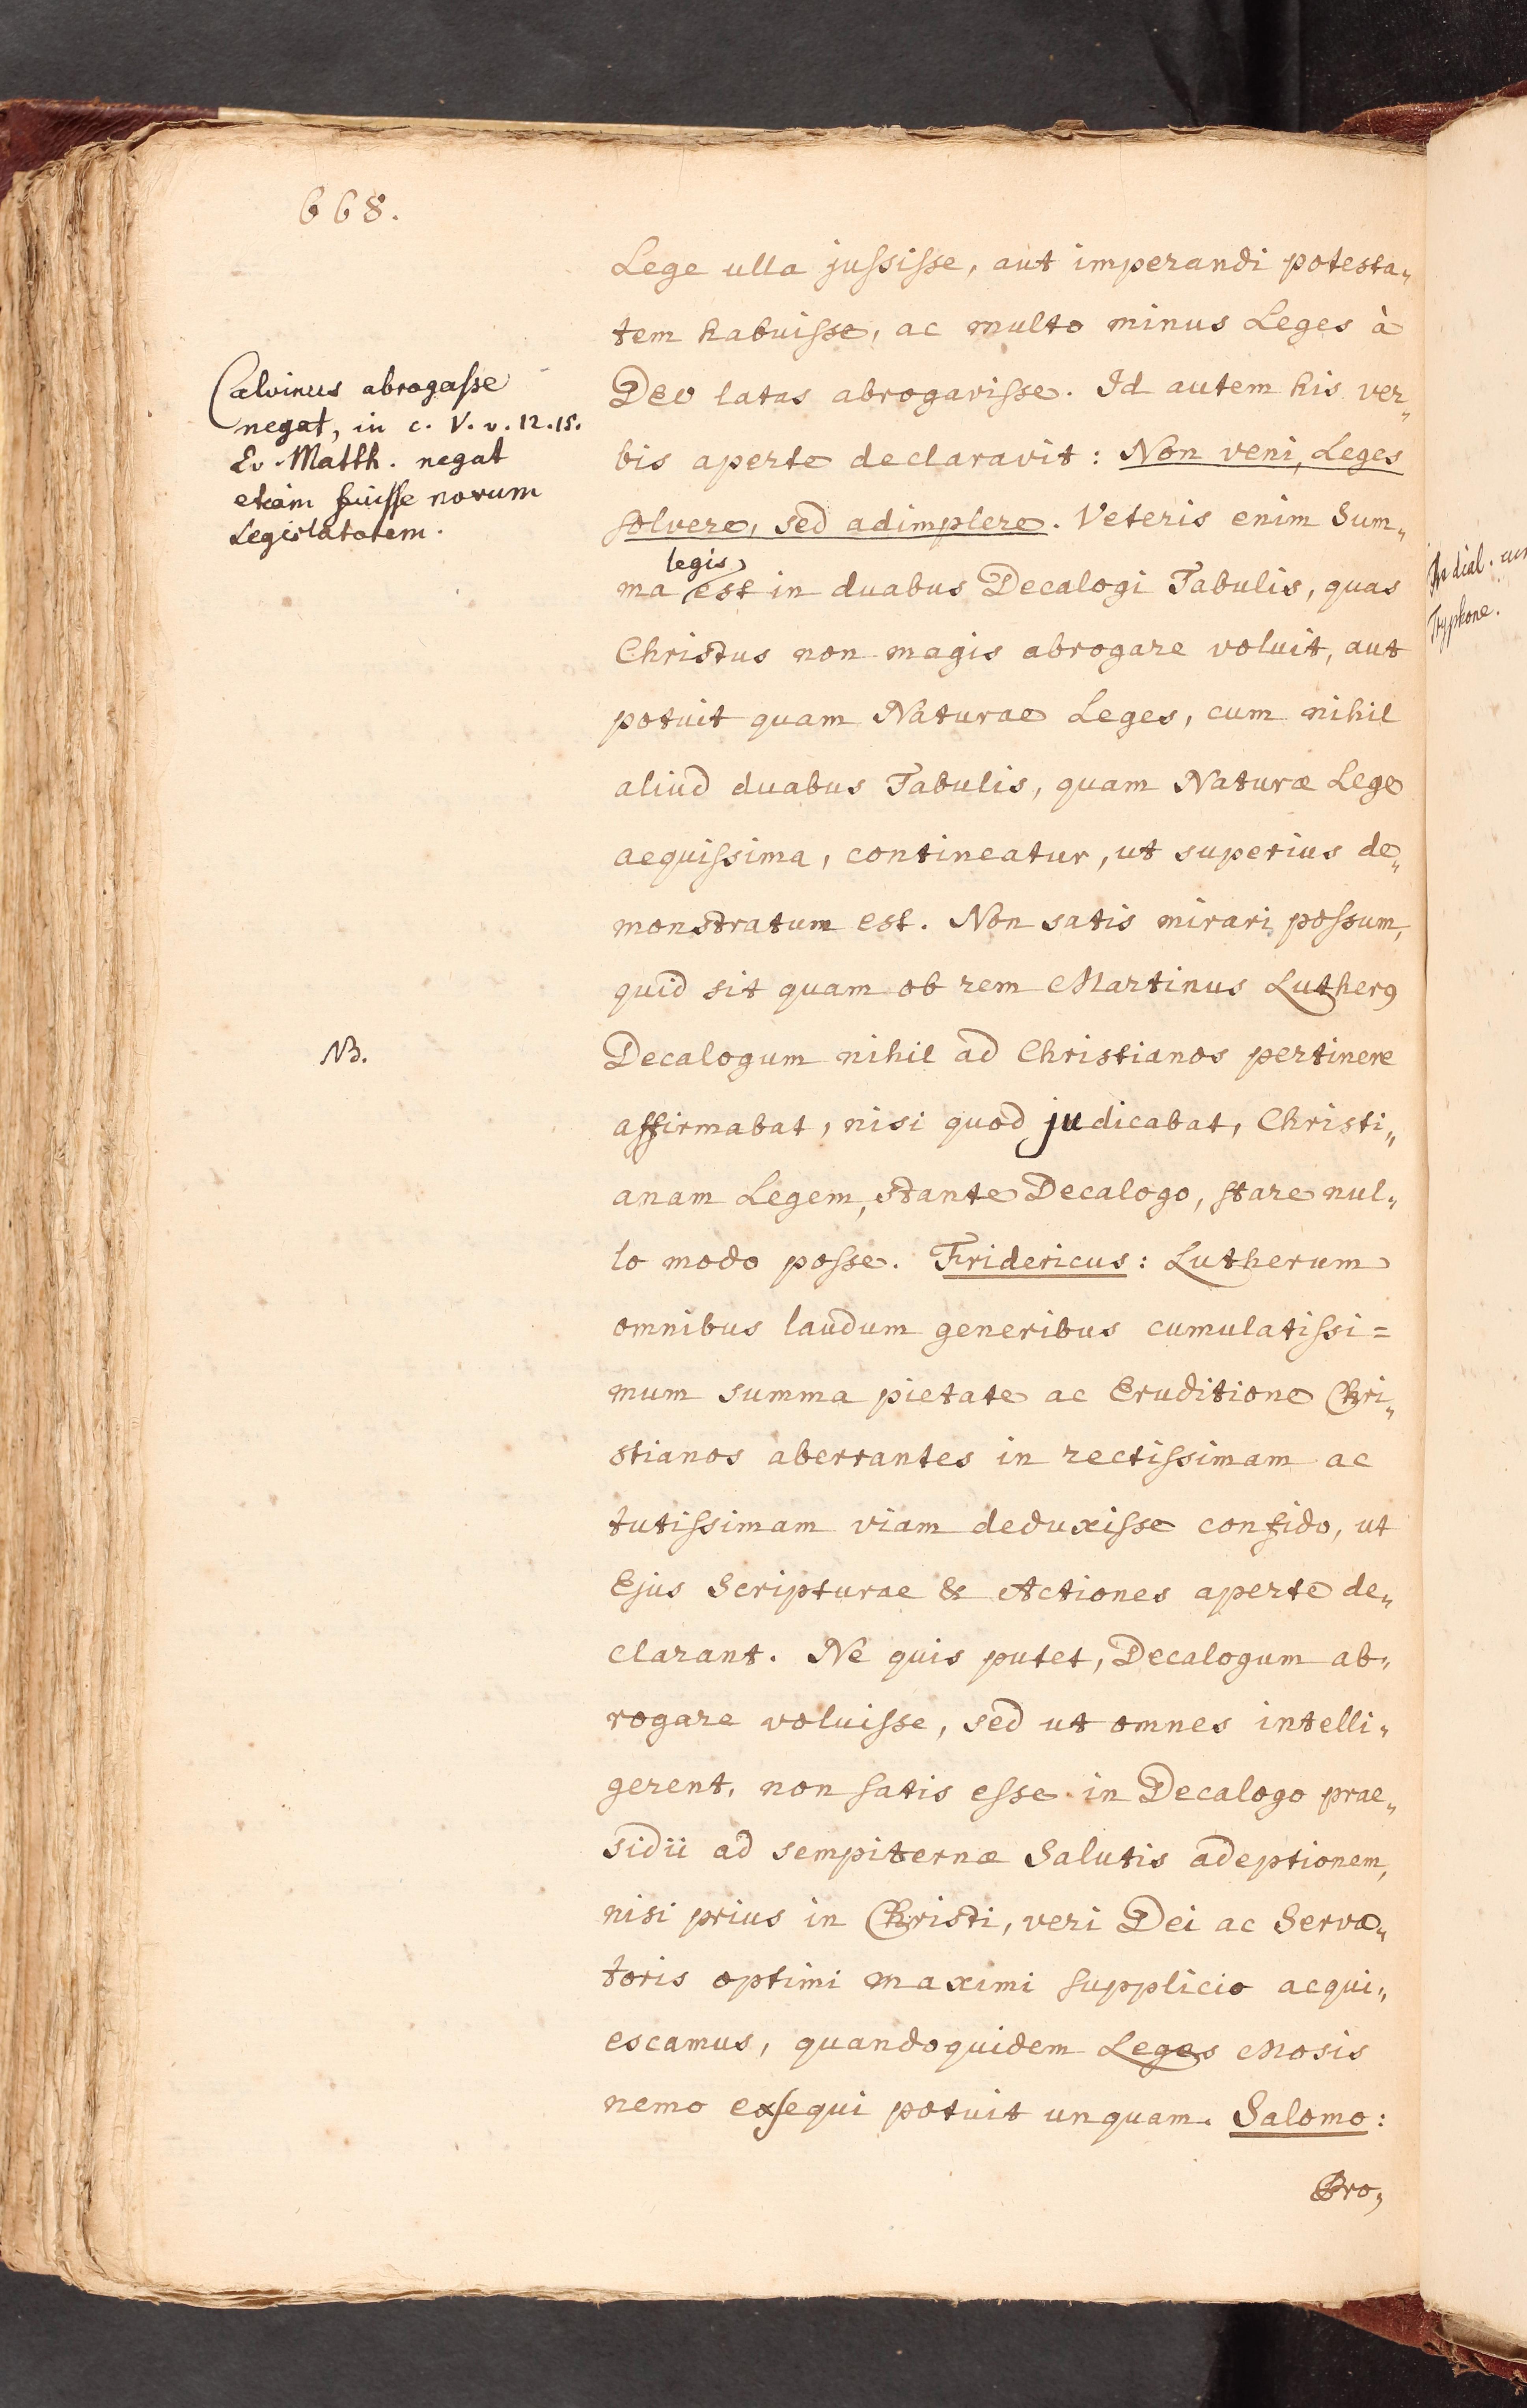 668.
Lege ulla jussisse, aut imperandi potesta„
tem habuisse, ac multo minus Leges à
Deo latas abrogavisse. Id autem his ver„
bis aperte declaravit: Non veni, Leges
solvere, sed adimplere. Veteris enim Sum„
legis
ma est in duabus Decalogi Tabulis, quas
Christus non magis abrogare voluit, aut
potuit quam Naturae Leges, cum nihil
aliud duabus Tabulis, quam Naturæ Lege
aequissima, contineatur, ut superius de„
monstratum est. Non satis mirari possum,
quid sit quam ob rem Martinus Lutherꝰ
Decalogum nihil ad Christianos pertinere
affirmabat, nisi quod judicabat, Christi„
anam Legem, stante Decalogo, stare nul„
lo modo posse. Fridericus: Lutherum
omnibus laudum generibus cumulatissi=
mum summa pietate ac Eruditione Chri„
stianos aberrantes in rectissimam ac
tutissimam viam deduxisse confido, ut
Ejus Scripturae & Actiones aperte de„
clarant. Ne quis putet, Decalogum ab„
rogare voluisse, sed ut omnes intelli„
gerent, non satis esse in Decalogo prae„
sidii ad sempiternæ Salutis adeptionem,
nisi prius in Christi, veri Dei ac Serva„
toris optimi maximi supplicio acqui„
escamus, quandoquidem Leges Mosis
nemo exsequi potuit unquam. Salomo:
Pro„
Calvinus abrogasse
negat, in c. V. v. 12.15.
Ev. Matth. negat
etiam fuisse novum
Legislatorem.
NB.
In dial. cum
Tryphone.